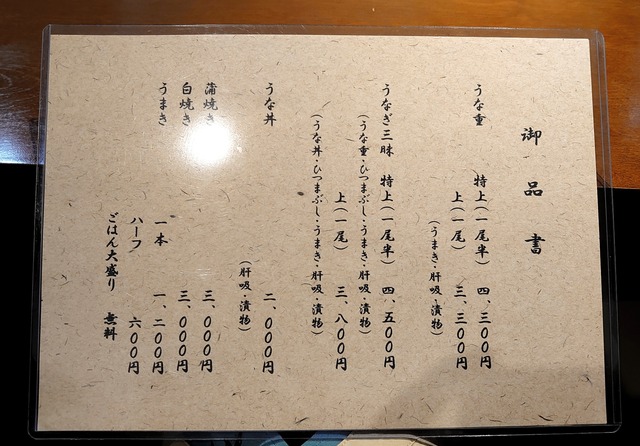 御品書
うな重 特上(一尾半) 四、三00円
上(一尾) 三、三00円
(うまき・肝吸・漬物)
うなぎ三昧 特上(一尾半) 四、五00円
(うな重・ひつまぶし・うまき・肝吸・漬物)
上(一尾) 三、八00円
(うな丼・ひつまぶし・うまき・肝吸・漬物)
うな丼 二、000円
(肝吸・漬物)
蒲焼き 三、000円
白焼き 三、000円
うまき 一本 一、二00円
ハーフ 六00円
ごはん大盛り 無料